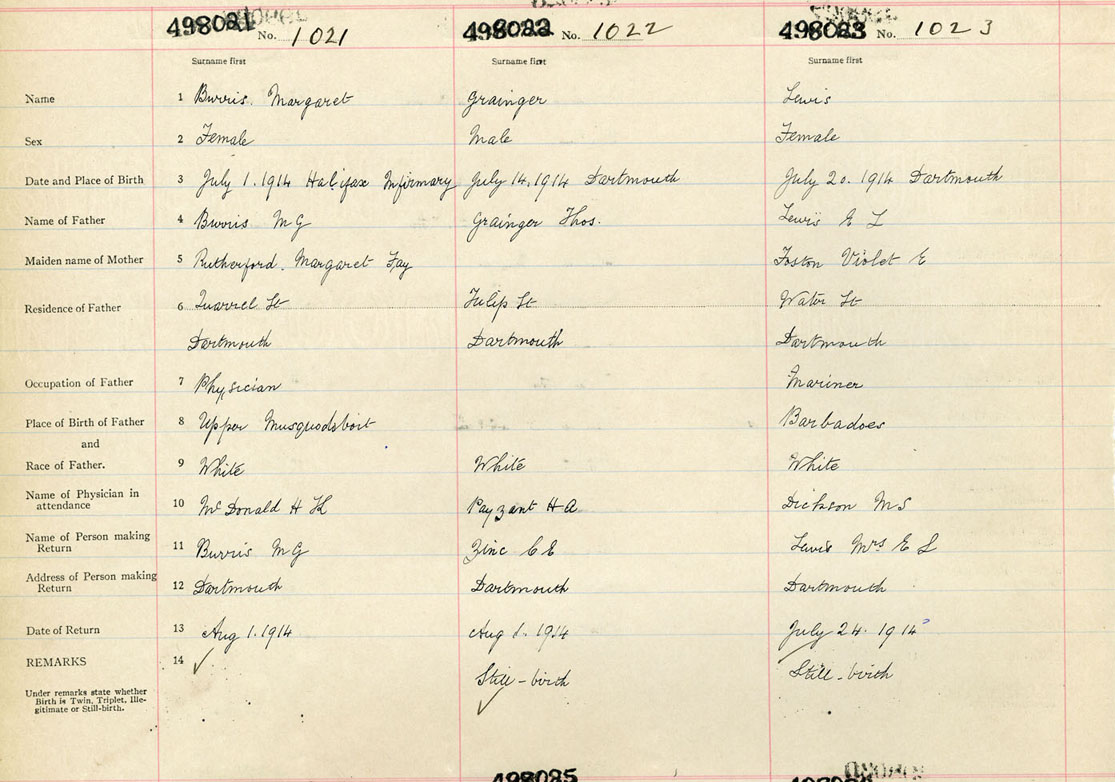 498021 No. 1021 498022 No. 1022 498023 No. 1023
Surname first Surname first Surname first
Name 1 Burris. Margaret Grainger Lewis
Sex 2 Female Male Female
Date and Place of Birth 3 July 1. 1914 Halifax Infirmary July 14. 1914 Dartmouth July 20. 1914 Dartmouth
Name of Father 4 Burris M G Grainger Thos. Lewis E L
Maiden name of Mother 5 Rutherford. Margaret Fay Foston Violet E
Residence of Father 6 Quarrel St Tulip St Water St
Dartmouth Dartmouth Dartmouth
Occupation of Father 7 Physician Mariner
Place of Birth of Father 8 Upper Musquodoboit Barbadoes
and
Race of Father. 9 White White White
Name of Physician in
attendance 10 McDonald H K Payzant H A Dickson M S
Name of Person making
Return 11 Burris M G Zinc C E Lewis Mrs E L
Address of Person making
Return 12 Dartmouth Dartmouth Dartmouth
Date of Return 13 Aug 1. 1914 Aug 1. 1914 July 24. 1914
REMARKS 14 Still-birth Still-birth
Under remarks state whether
Birth is Twin, Triplet, Ille-
gitimate or Still-birth.
498025